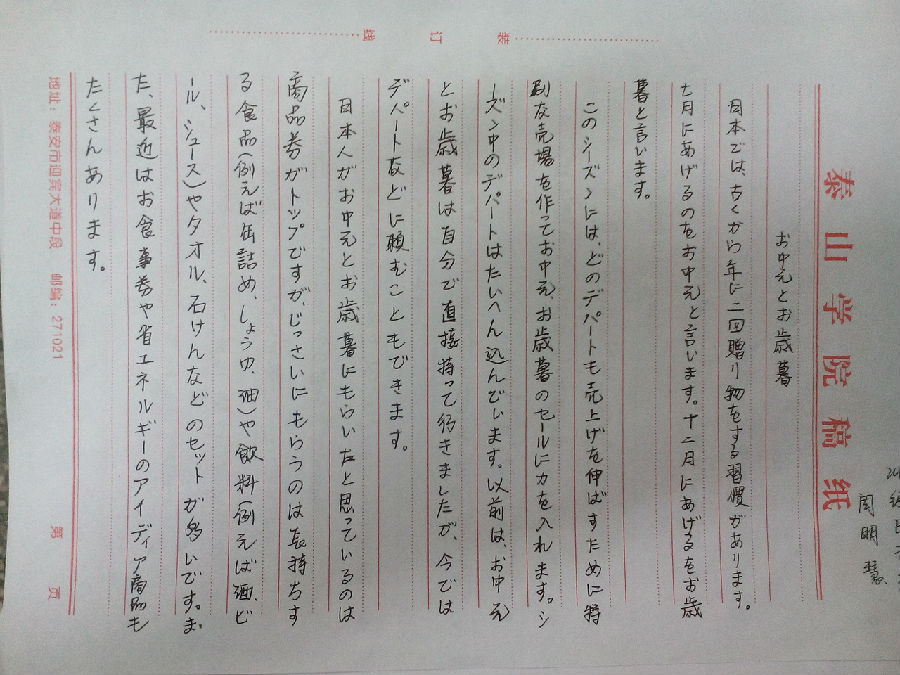 泰山学院稿纸
周明慧
お中元とお歳暮
日本では、古くから年に二回贈り物をする習慣があります。
七月にあげるのをお中元と言います。十二月にあげるをお歳
暮と言います。
このシーズンには、どのデパートも売上げを伸ばすために特
別な売場を作ってお中元、お歳暮のセールに力を入れます。シ
ーズン中のデパートはたいへん込んでいます。以前は、お中元
とお歳暮は自分で直接持って行きましたが、今では
デパートなどに頼むこともできます。
日本人がお中元とお歳暮にもらいたと思っているのは
商品券がトップですが、じっさいにもらうのは長持ちす
る食品(例えば缶詰め、しょうゆ、油)や飲料例えば酒、ビ
ール、シュース)やタオル、石けんなどのセットが多いです。ま
た、最近はお食事券や省エネルギーのアイディア商品も
たくさんあります。
地址:泰安市迎宾大道中段 邮编:271021 第 页
装 订 线